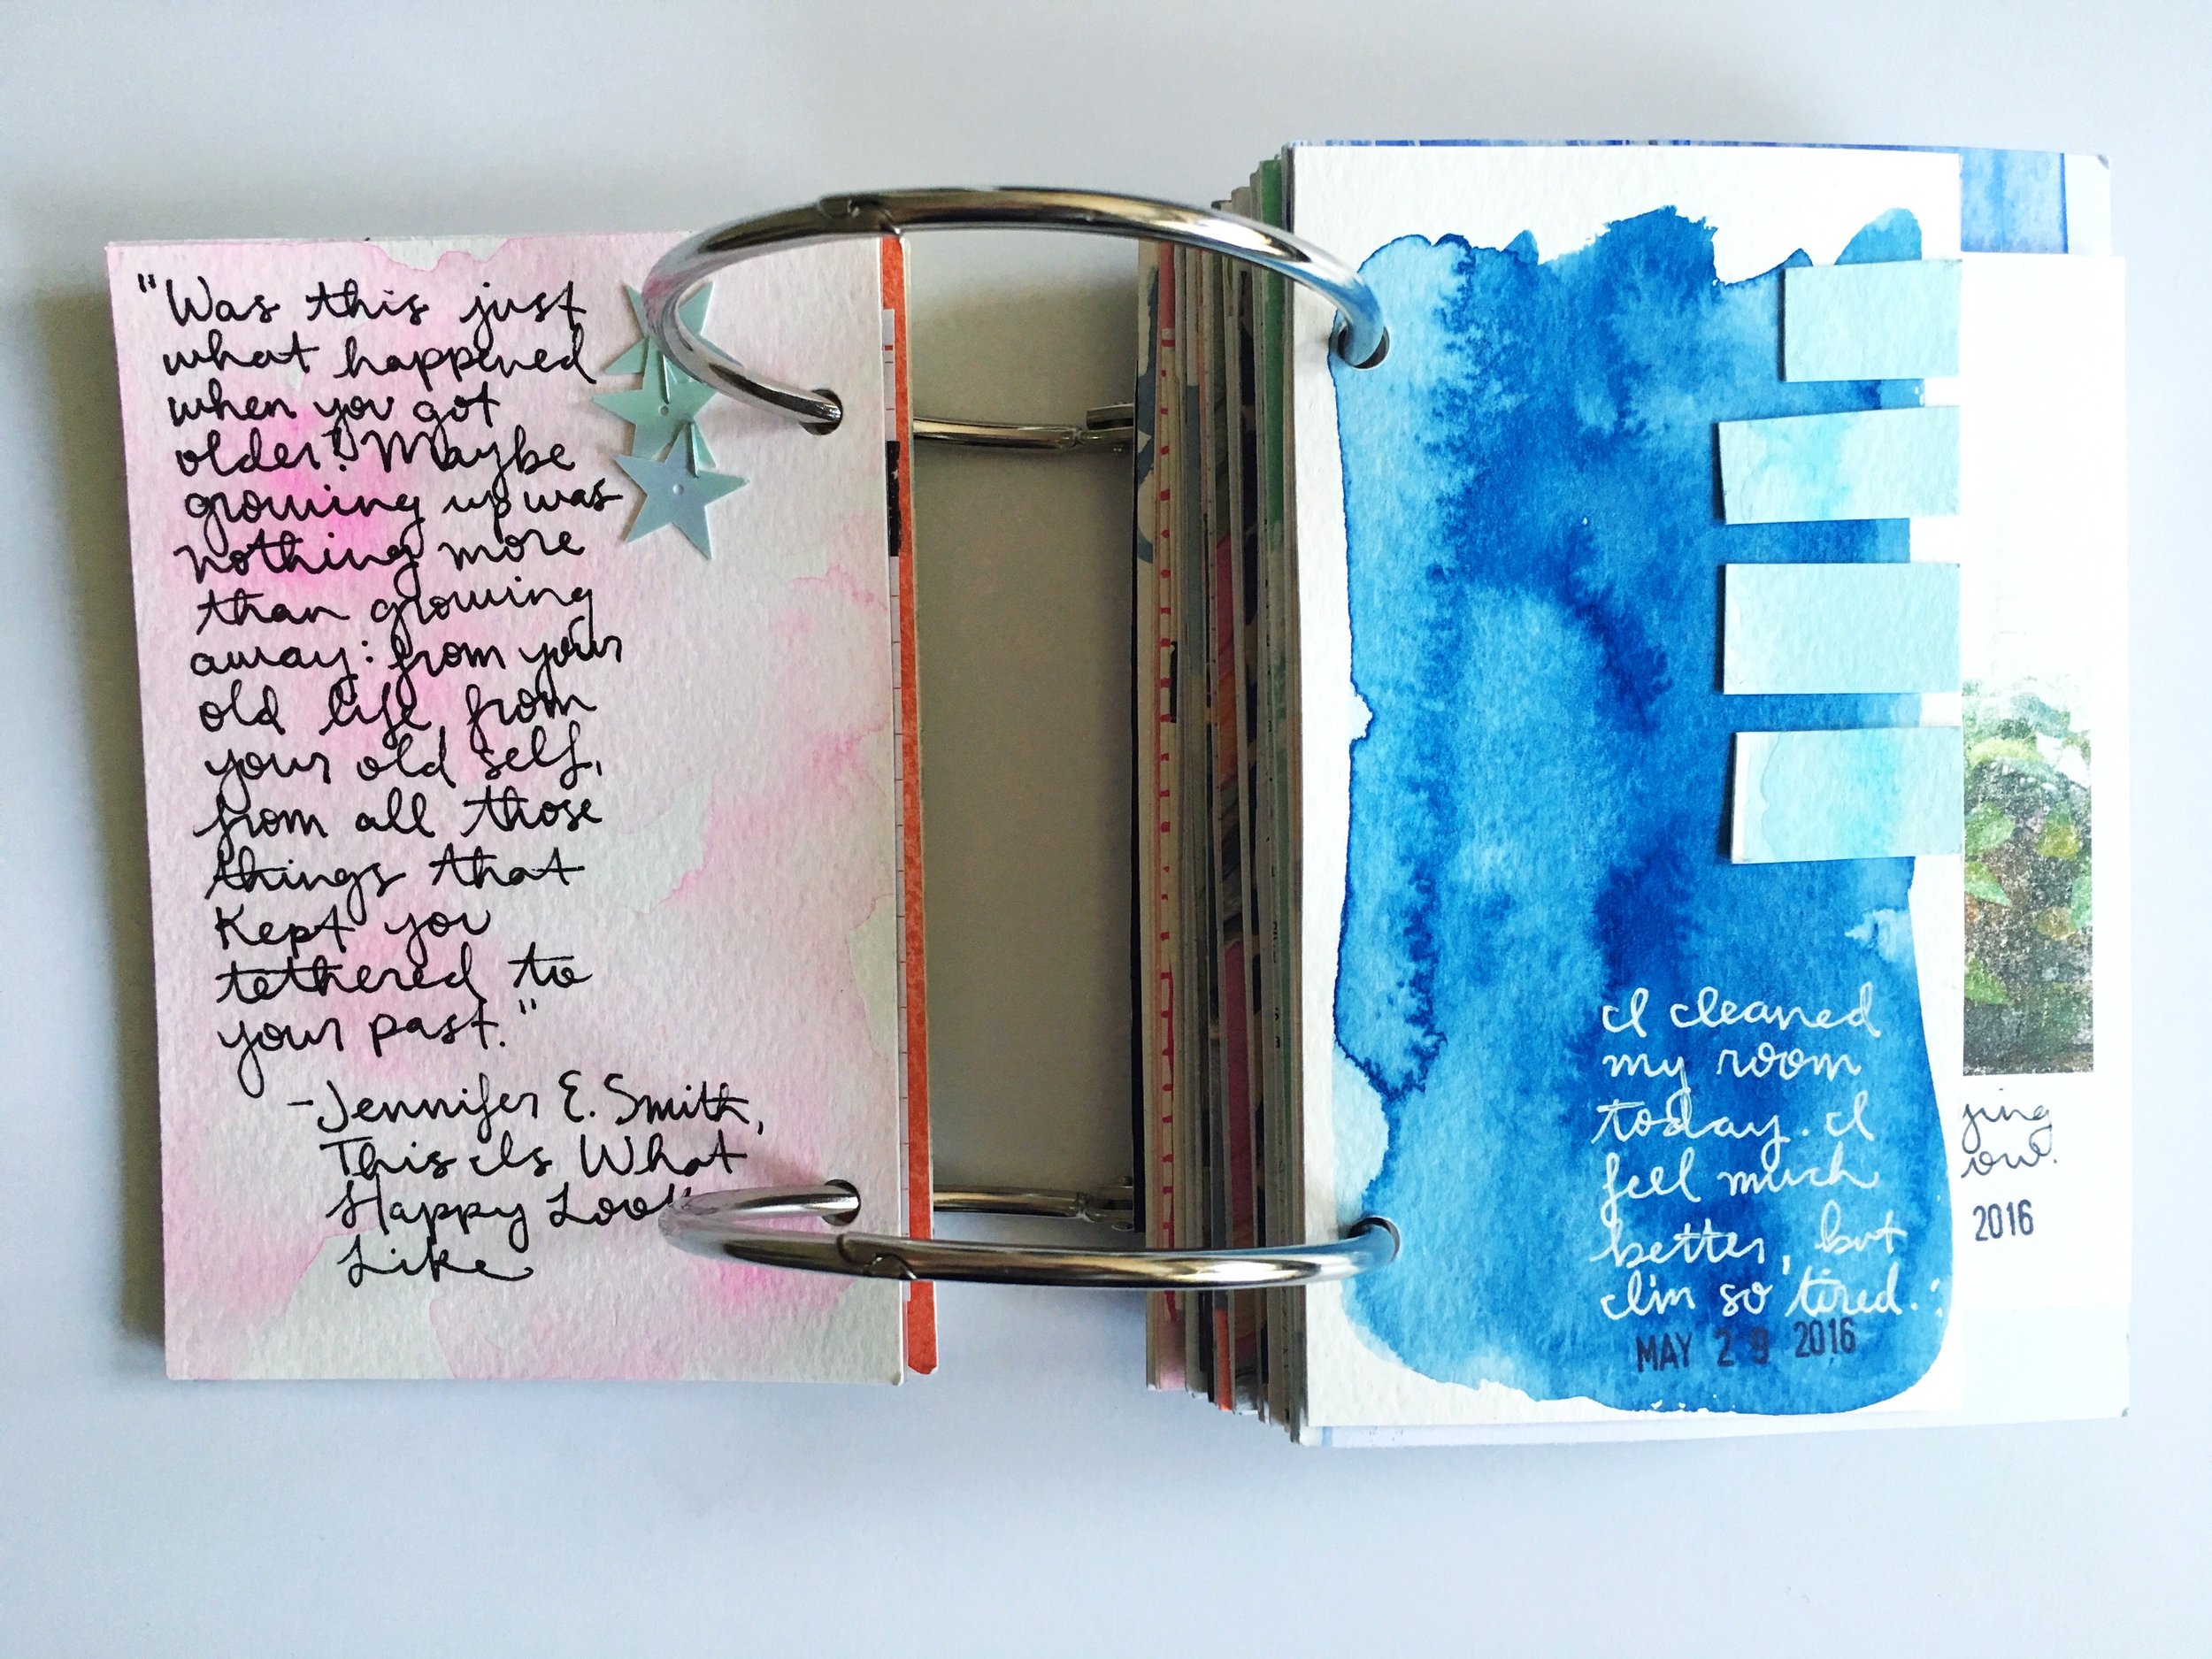 "Was this just
what happened
when you got
older? Maybe
growing up was
nothing more
than growing
away: from your
old life, from
your old self,
from all those
things that
kept you
tethered to
your past."
-Jennifer E. Smith,
This Is What
Happy Look
Like
I cleaned
my room
today. I
feel much
better, but
I'm so tired. :
MAY 29 2016
2016